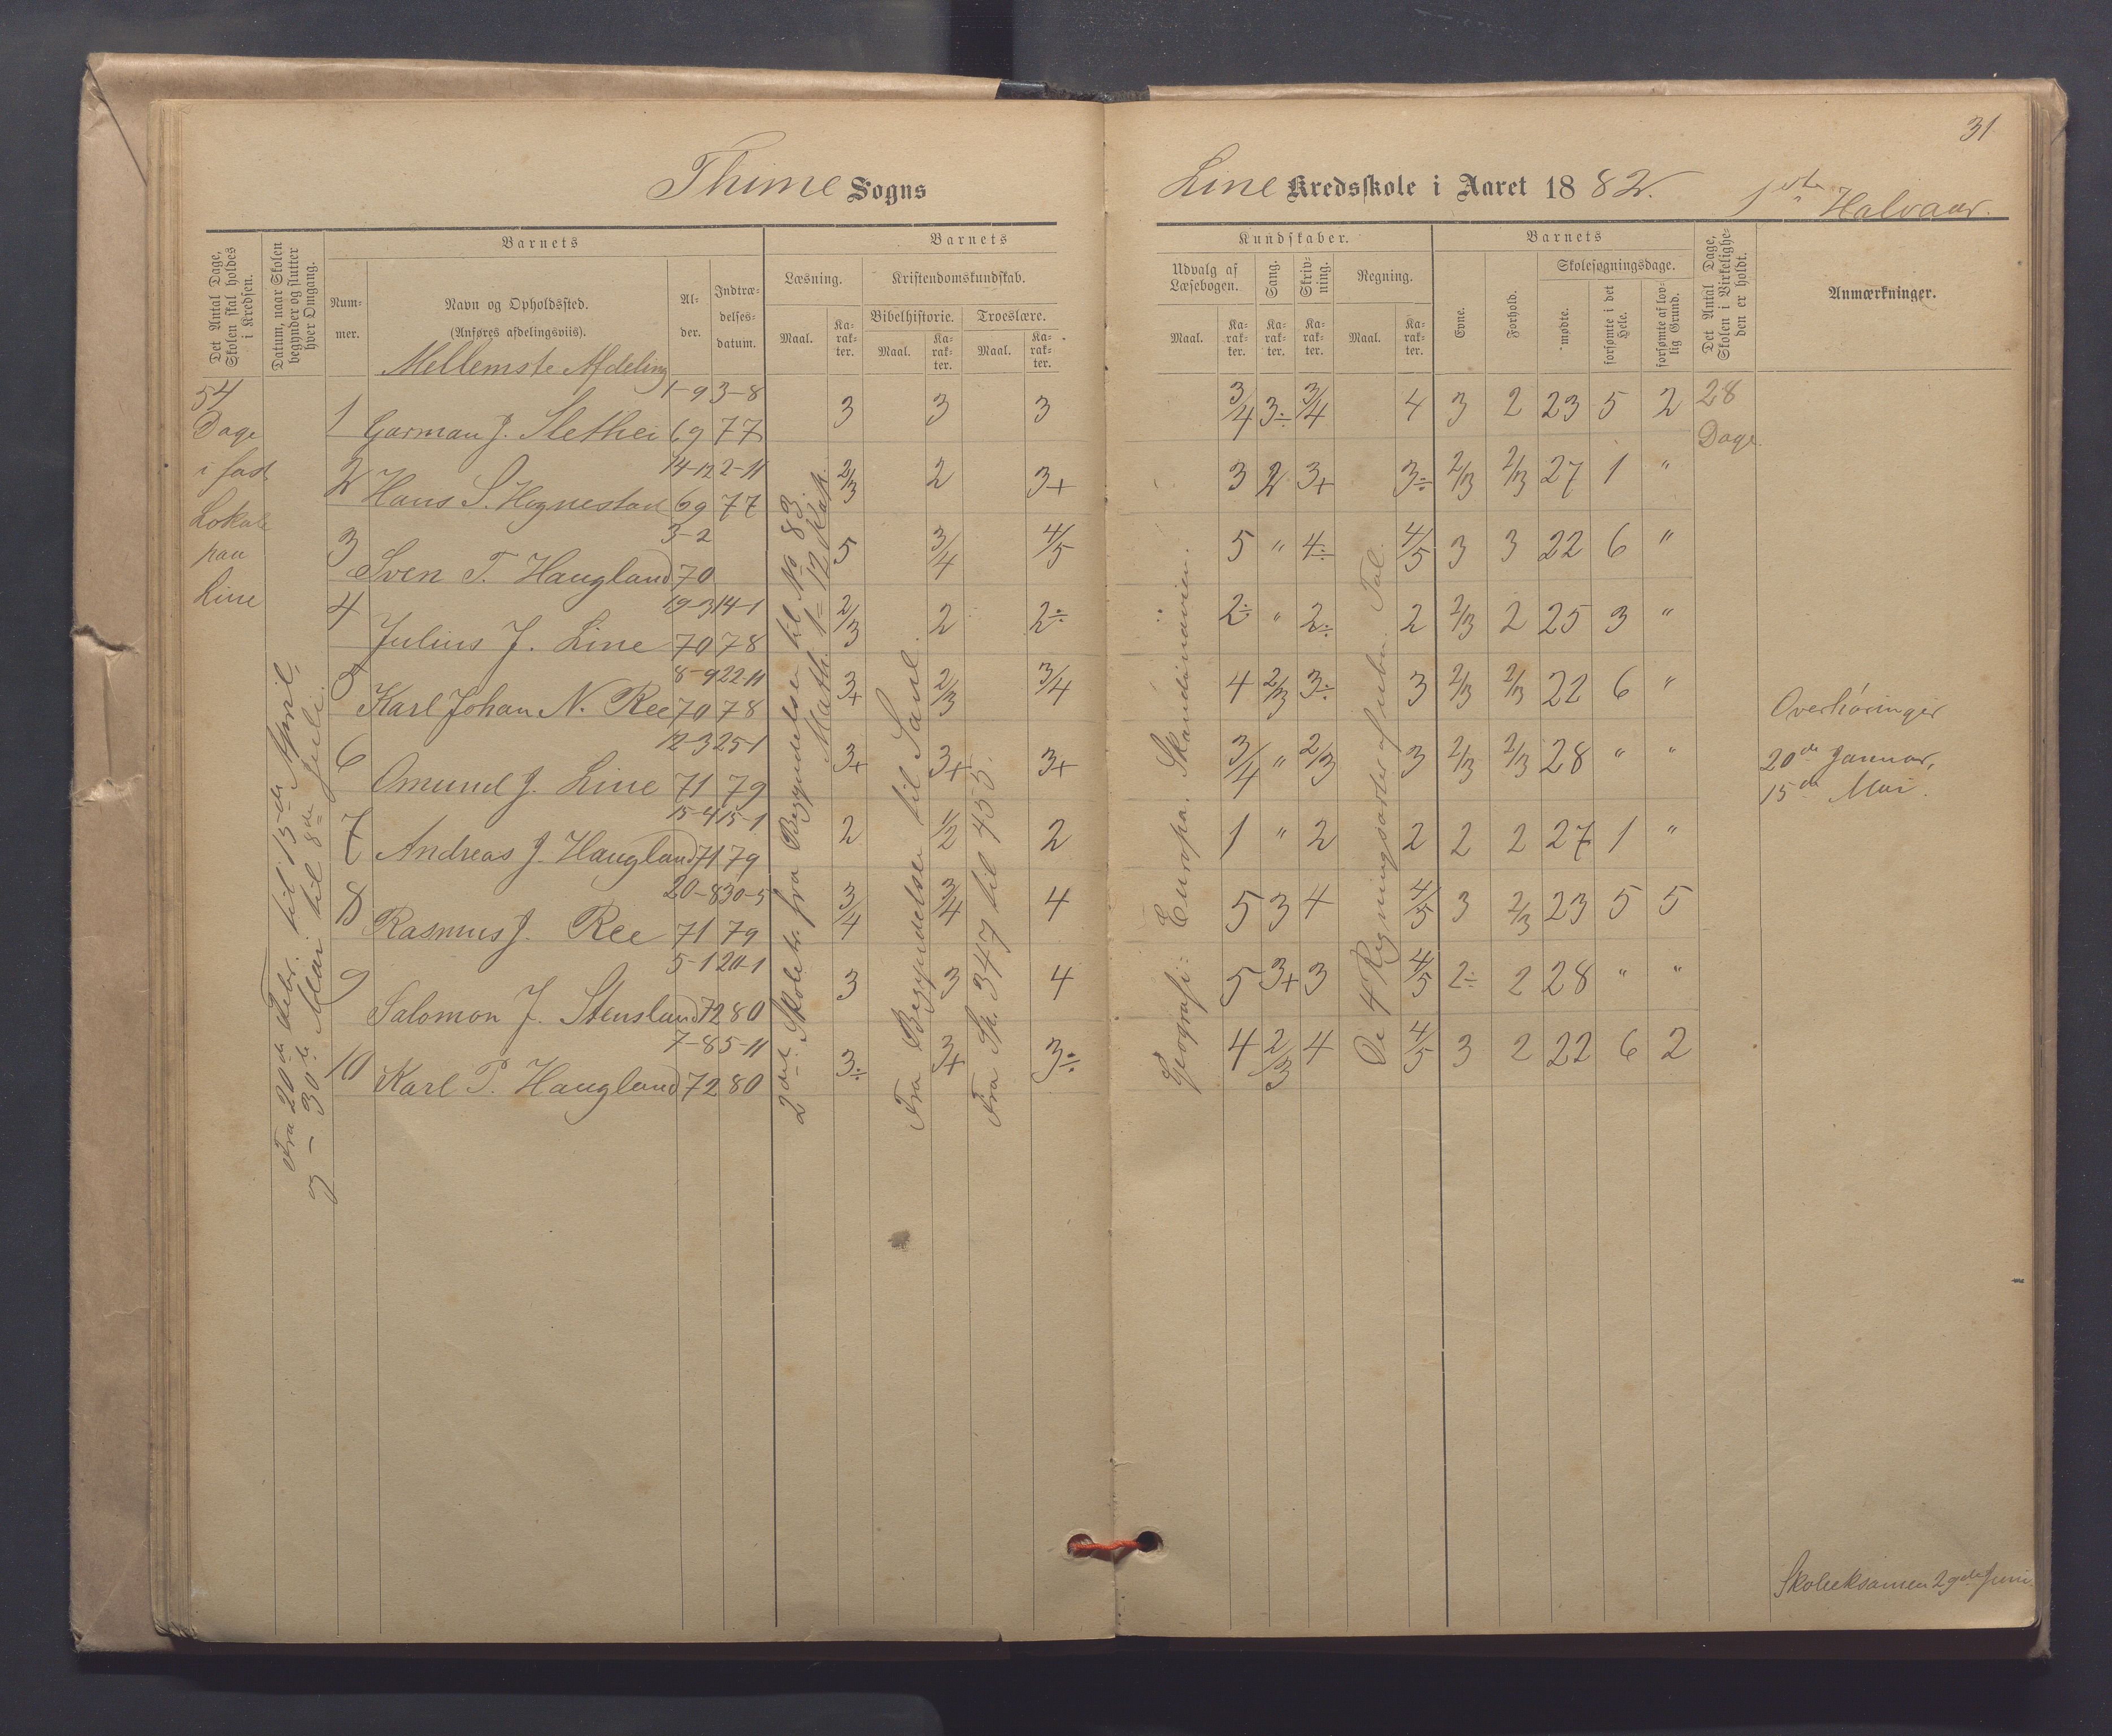 31
Thime Sogns
Line Kredsskole i Aaret 1882. 1ste Halvaar.
Det Antal Dage, Skolen skal holdes i Kredsen.
Datum, naar Skolen begynder og slutter hver Omgang.
Barnets
Nummer.
Navn og Opholdssted.
(Anføres afdelingsviis).
Alder.
Indtrædelsesdatum.
Barnets
Læsning.
Maal.
Karakter.
Kristendomskundskab.
Bibelhistorie.
Maal.
Karakter.
Troeslære.
Maal.
Karakter.
Kundskaber.
Udvalg af Læsebogen.
Maal.
Karakter.
Sang.
Karakter.
Skrivning.
Karakter.
Regning.
Maal.
Karakter.
Barnets
Evne.
Forhold.
Skolesøgningsdage.
mødte.
forsømte i det Hele.
forsømte af lovlig Grund.
Det Antal Dage, Skolen i Virkeligheden er holdt.
Anmærkninger.
Mellemste Afdeling
54
Dage
i fast
Lokale
paa
Line
Fra 20de Febr. til 15de April,
og – 30te Mai til 8de Juli.
1 Garman J. Slethei 1-9 69 3-8 77 3 3 3 3/4 3÷ 3/4 4 3 2 23 5 2 28 Dage.
2 Hans S. Hognestad 14-12 69 2-11 77 2/3 2 3+ 3 2 3+ 3÷ 2/3 2/3 27 1 "
3 Sven T. Haugland 3-2 70 5 3/4 4/5 5 " 4÷ 4/5 3 3 22 6 "
4 Julius J. Line 19-3 70 14-1 78 2/3 2 2÷ 2÷ " 2÷ 2 2/3 2 25 3 "
5 Karl Johan N. Ree 8-9 70 22-11 78 3+ 2/3 3/4 4 2/3 3÷ 3 2/3 2/3 22 6 "
6 Omund J. Line 12-3 71 25-1 79 3+ 3+ 3+ 3/4 " 2/3 3 2/3 2/3 28 " "
7 Andreas J. Haugland 15-4 71 15-1 79 2 1/2 2 1 " 2 2 2 2 27 1 "
8 Rasmus J. Ree 20-8 71 30-5 79 3/4 3/4 4 5 3 4 4/5 3 2/3 23 5 5
9 Salomon J. Stensland 5-1 72 20-1 80 3 3 4 5 3+ 3 4/5 2÷ 2 28 " "
10 Karl P. Haugland 7-8 72 5-11 80 3÷ 3+ 3÷ 4 2/3 4 4/5 3 2 22 6 2
2det Skoletr. fra Begyndelsen til No 83.
Math. 1–12 Kap.
Fra Begyndelsen til Saul.
Fra Sp. 347 til 455.
Geografi: Europa. Skandinavien.
De 4 Regningsarter af ubn. Tal.
Overhøringer
20de Januar,
15de Mai.
Skoleeksamen 29de Juni